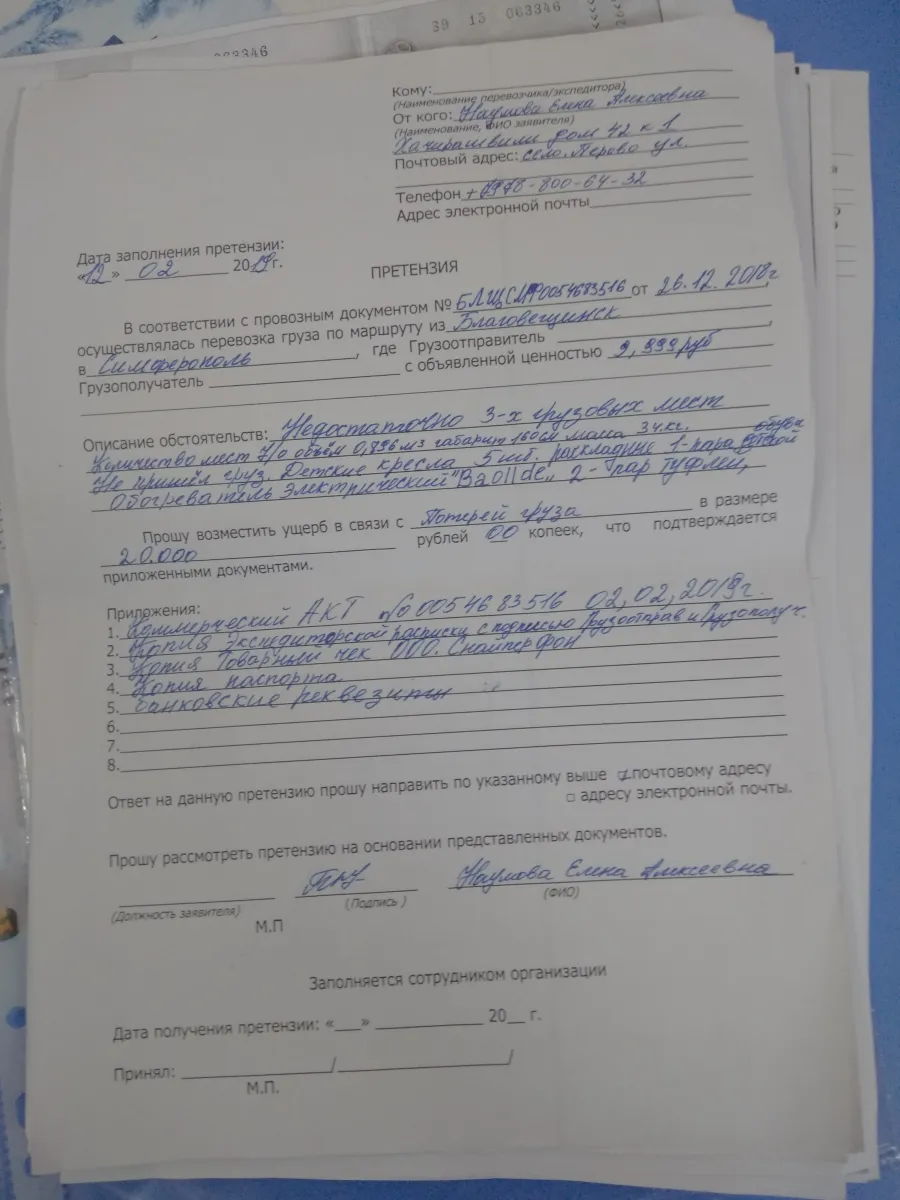 39 15 063346
063346
Кому:
(Наименование перевозчика/экспедитора)
От кого: Наумова Елена Алексеевна
(Наименование, ФИО заявителя)
Хачирашвили дом 42 к 1
Почтовый адрес: село. Перово ул.
Телефон +7978-800-64-32
Адрес электронной почты
Дата заполнения претензии:
«12» 02 2019г.
ПРЕТЕНЗИЯ
В соответствии с провозным документом № БЛЩСМФ0054683516 от 26.12.2018г
осуществлялась перевозка груза по маршруту из Благовещинск,
в Симферополь, где Грузоотправитель
Грузополучатель с объявленной ценностью 9,999руб
Описание обстоятельств: Недостаточно 3-х грузовых мест
Количество мест 7/0 объём 0,896 м3 габарит 160см масса 34.кг.
Не пришёл груз. Детские кресла 5шт. раскладные 1-пара обуви
Обогреватель Электрический "Baollde„ 2- пар туфлей,
Прошу возместить ущерб в связи с Потерей груза в размере
20.000 рублей 00 копеек, что подтверждается
приложенными документами.
Приложения:
1. Коммерческий АКТ №0054683516 02,02,2019г.
2. Копия Экспедиторской расписки с подписью Грузоотправ и Грузополуч.
3. Копия Товарный чек ООО. СнайперФон
4. Копия паспорта
5. Банковские реквезиты
6.
7.
8.
Ответ на данную претензию прошу направить по указанному выше почтовому адресу
□ адресу электронной почты.
Прошу рассмотреть претензию на основании представленных документов.
Наумова Елена Алексеевна
(Должность заявителя) (Подпись ) (ФИО)
М.П
Заполняется сотрудником организации
Дата получения претензии: «___» ________ 20__ г.
Принял: ________/________/
М.П.